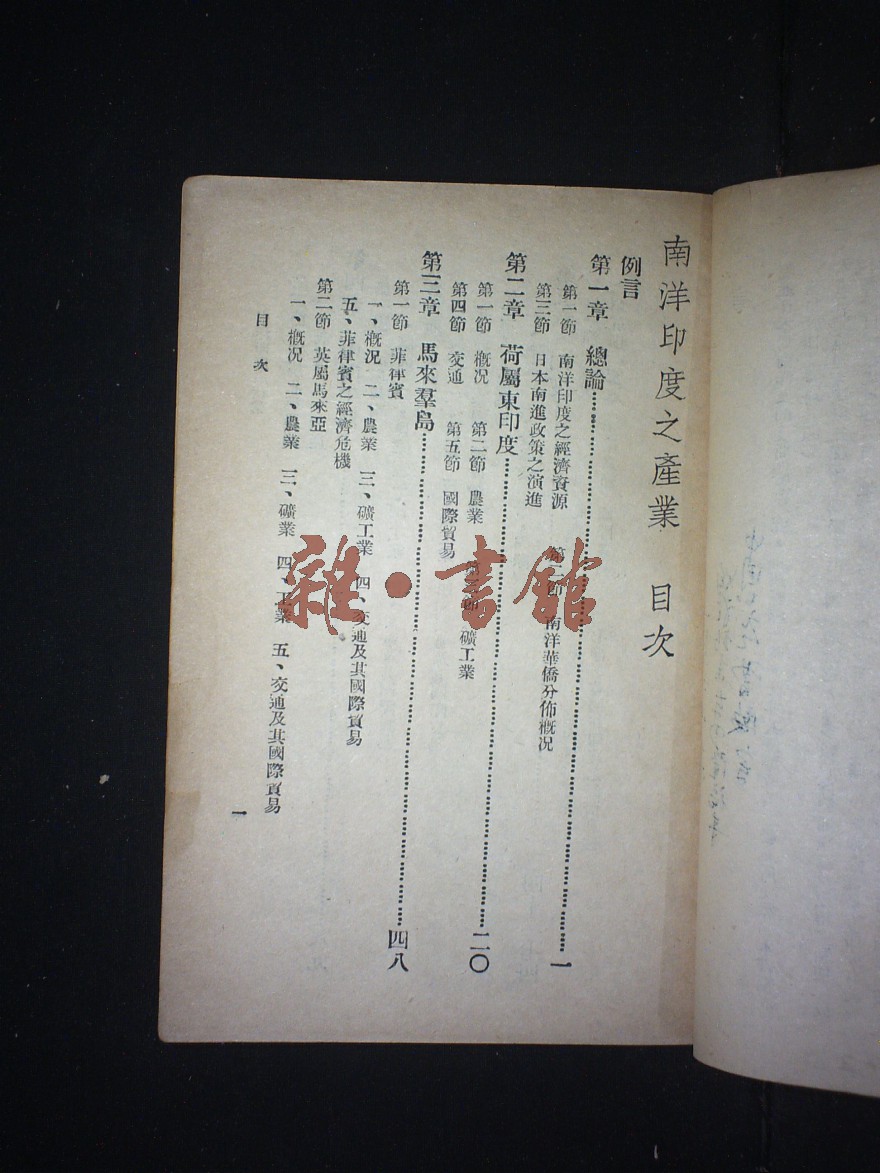 南洋印度之產業 目次
例言
第一章 總論……一
第一節 南洋印度之經濟資源 第二節 南洋華僑分佈概况
第三節 日本南進政策之演進
第二章 荷屬東印度……二〇
第一節 概况 第二節 農業 第三節 礦工業
第四節 交通 第五節 國際貿易
第三章 馬來羣島……四八
第一節 菲律賓
一、概况 二、農業 三、礦工業 四、交通及其國際貿易
五、菲律賓之經濟危機
第二節 英屬馬來亞
一、概况 二、農業 三、礦業 四、工業 五、交通及其國際貿易
目次
一
雜·書館